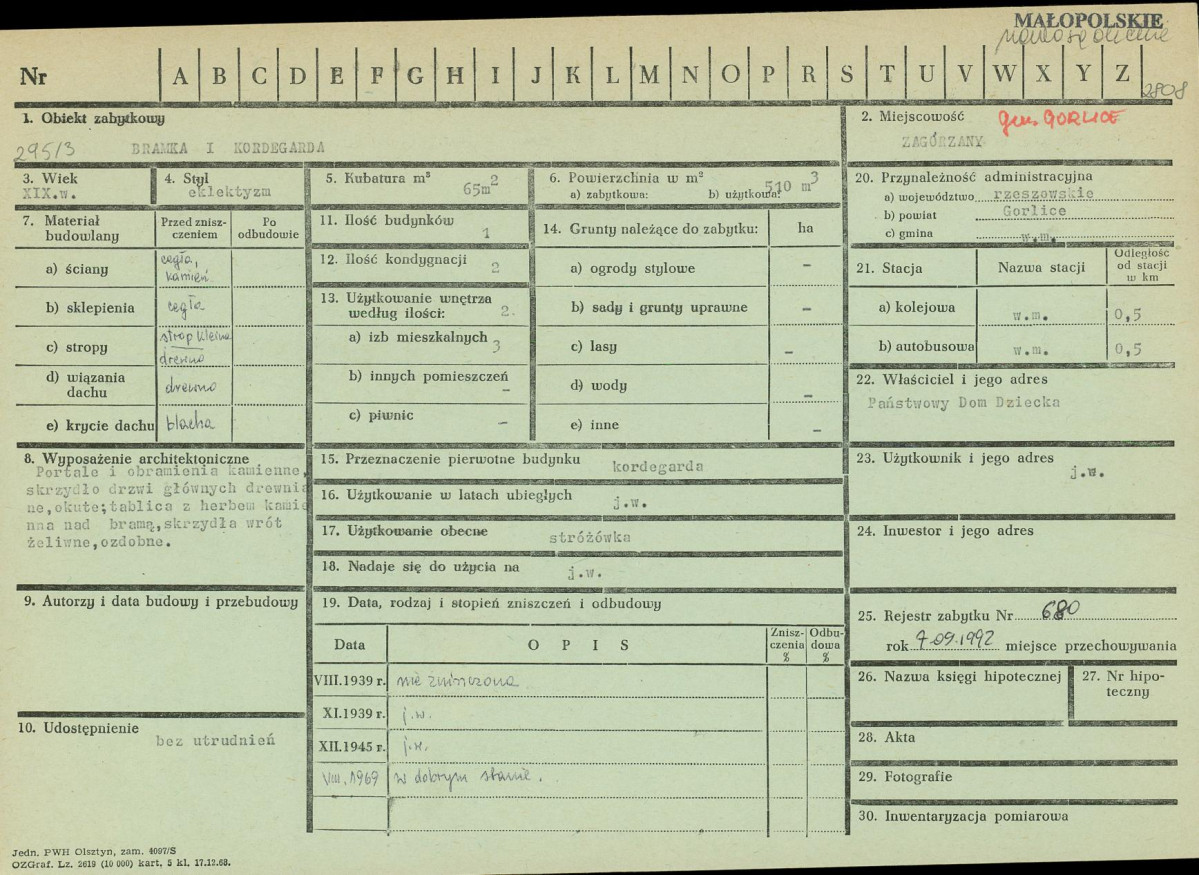 MAŁOPOLSKIE
nowosądeckie
Nr A B C D E F G H I J K L M N O P R S T U V W X Y Z
2808
1. Obiekt zabytkowy
295/3 BRAMKA I KORDEGARDA
2. Miejscowość gm. GORLICE
ZAGÓRZANY
3. Wiek
XIX.w.
4. Styl
eklektyzm
5. Kubatura m³
65m2
6. Powierzchnia w m²
a) zabytkowa: b) użytkowa:
510 m3
20. Przynależność administracyjna
a) województwo rzeszowskie
b) powiat Gorlice
c) gmina w.m.
7. Materiał budowlany
Przed zniszczeniem
Po odbudowie
a) ściany cegła, kamień
b) sklepienia cegła
c) stropy strop kleina drewno
d) wiązania dachu drewno
e) krycie dachu blacha
11. Ilość budynków 1
12. Ilość kondygnacji 2
13. Użytkowanie wnętrza
według ilości: 2.
a) izb mieszkalnych 3
b) innych pomieszczeń -
c) piwnic -
14. Grunty należące do zabytku: ha
a) ogrody stylowe -
b) sady i grunty uprawne -
c) lasy -
d) wody -
e) inne -
21. Stacja
Nazwa stacji
Odległość
od stacji
w km
a) kolejowa w.m. 0,5
b) autobusowa w.m. 0,5
22. Właściciel i jego adres
Państwowy Dom Dziecka
8. Wyposażenie architektoniczne
Portale i obramienia kamienne,
skrzydło drzwi głównych drewnia
ne,okute;tablica z herbem kamie
nna nad bramą,skrzydła wrót
żeliwne,ozdobne.
15. Przeznaczenie pierwotne budynku kordegarda
16. Użytkowanie w latach ubiegłych j.w.
17. Użytkowanie obecne stróżówka
18. Nadaje się do użycia na j.w.
23. Użytkownik i jego adres
j.w.
24. Inwestor i jego adres
9. Autorzy i data budowy i przebudowy
10. Udostępnienie
bez utrudnień
19. Data, rodzaj i stopień zniszczeń i odbudowy
Data
O P I S
Zniszczenia %
Odbudowa %
VIII.1939 r. nie zniszczona
XI.1939 r. j.w.
XII.1945 r. j.w.
VIII.1969 w dobrym stanie.
25. Rejestr zabytku Nr 680
rok 7.09.1992 miejsce przechowywania
26. Nazwa księgi hipotecznej
27. Nr hipoteczny
28. Akta
29. Fotografie
30. Inwentaryzacja pomiarowa
Jedn. PWH Olsztyn, zam. 4097/S
OZGraf. Lz. 2619 (10 000) kart. 5 kl. 17.12.68.